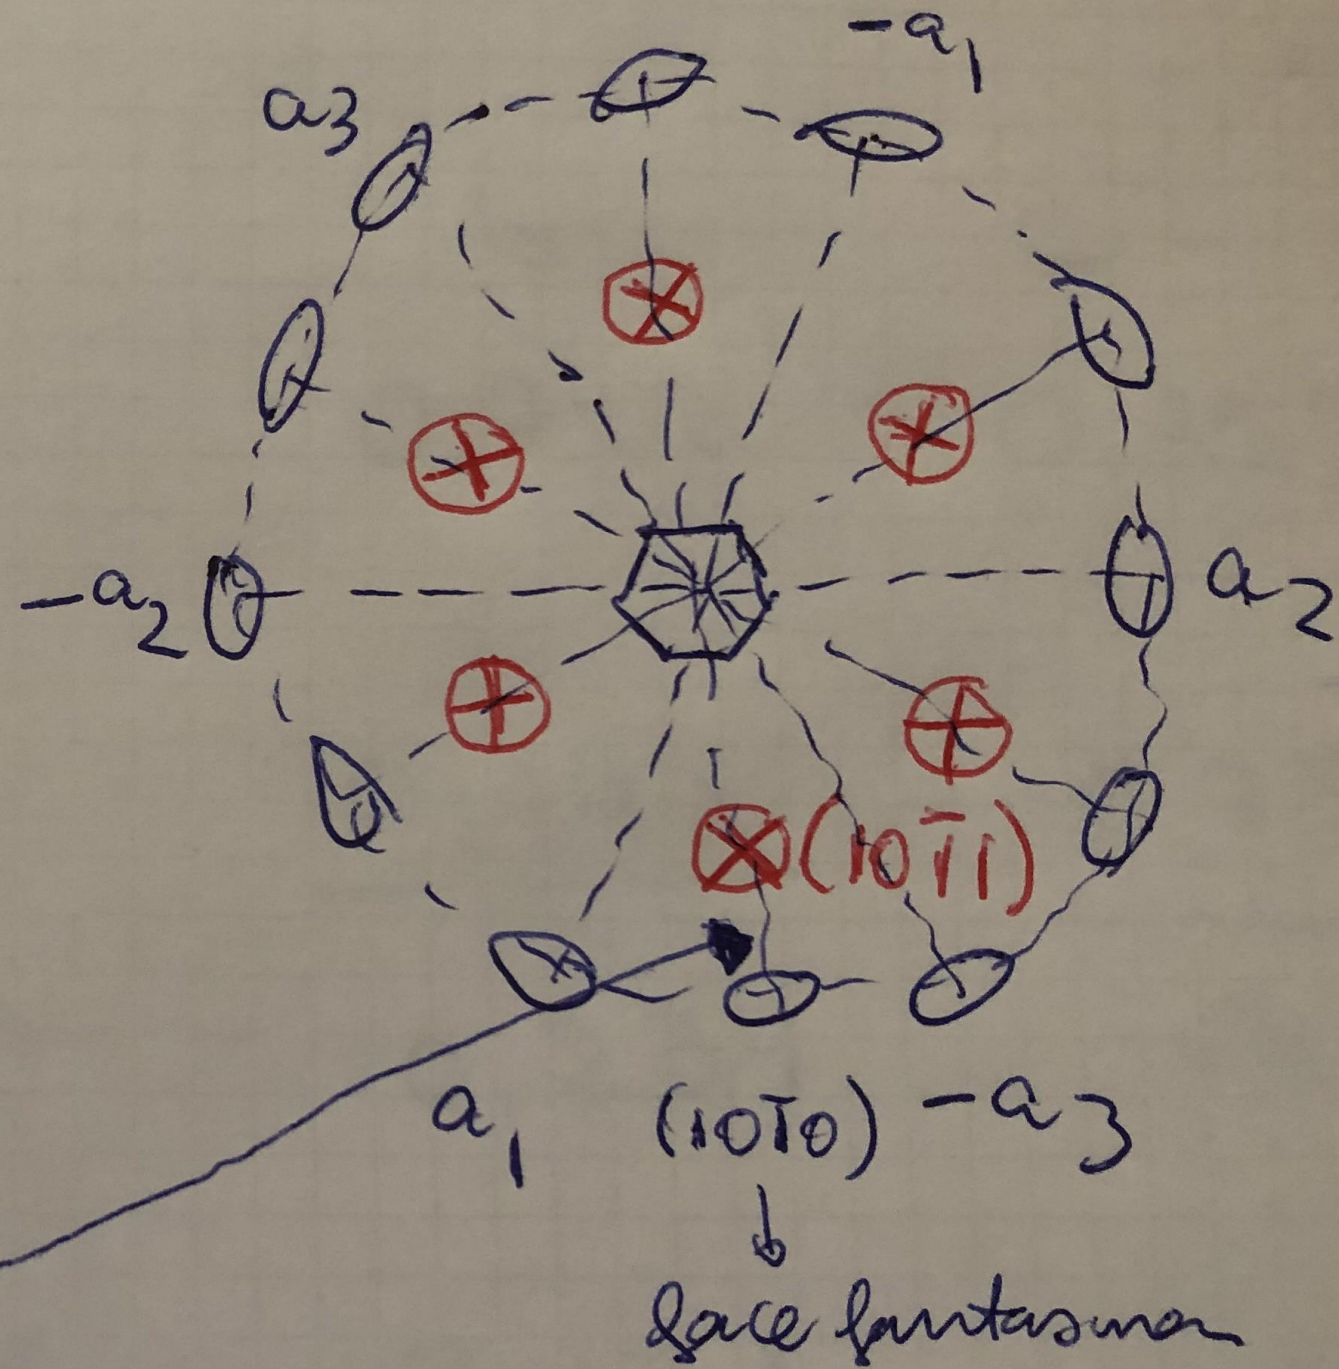 -a1
a3
-a2
a2
(101̄1)
a1
(101̄0)
-a3
face fantasma